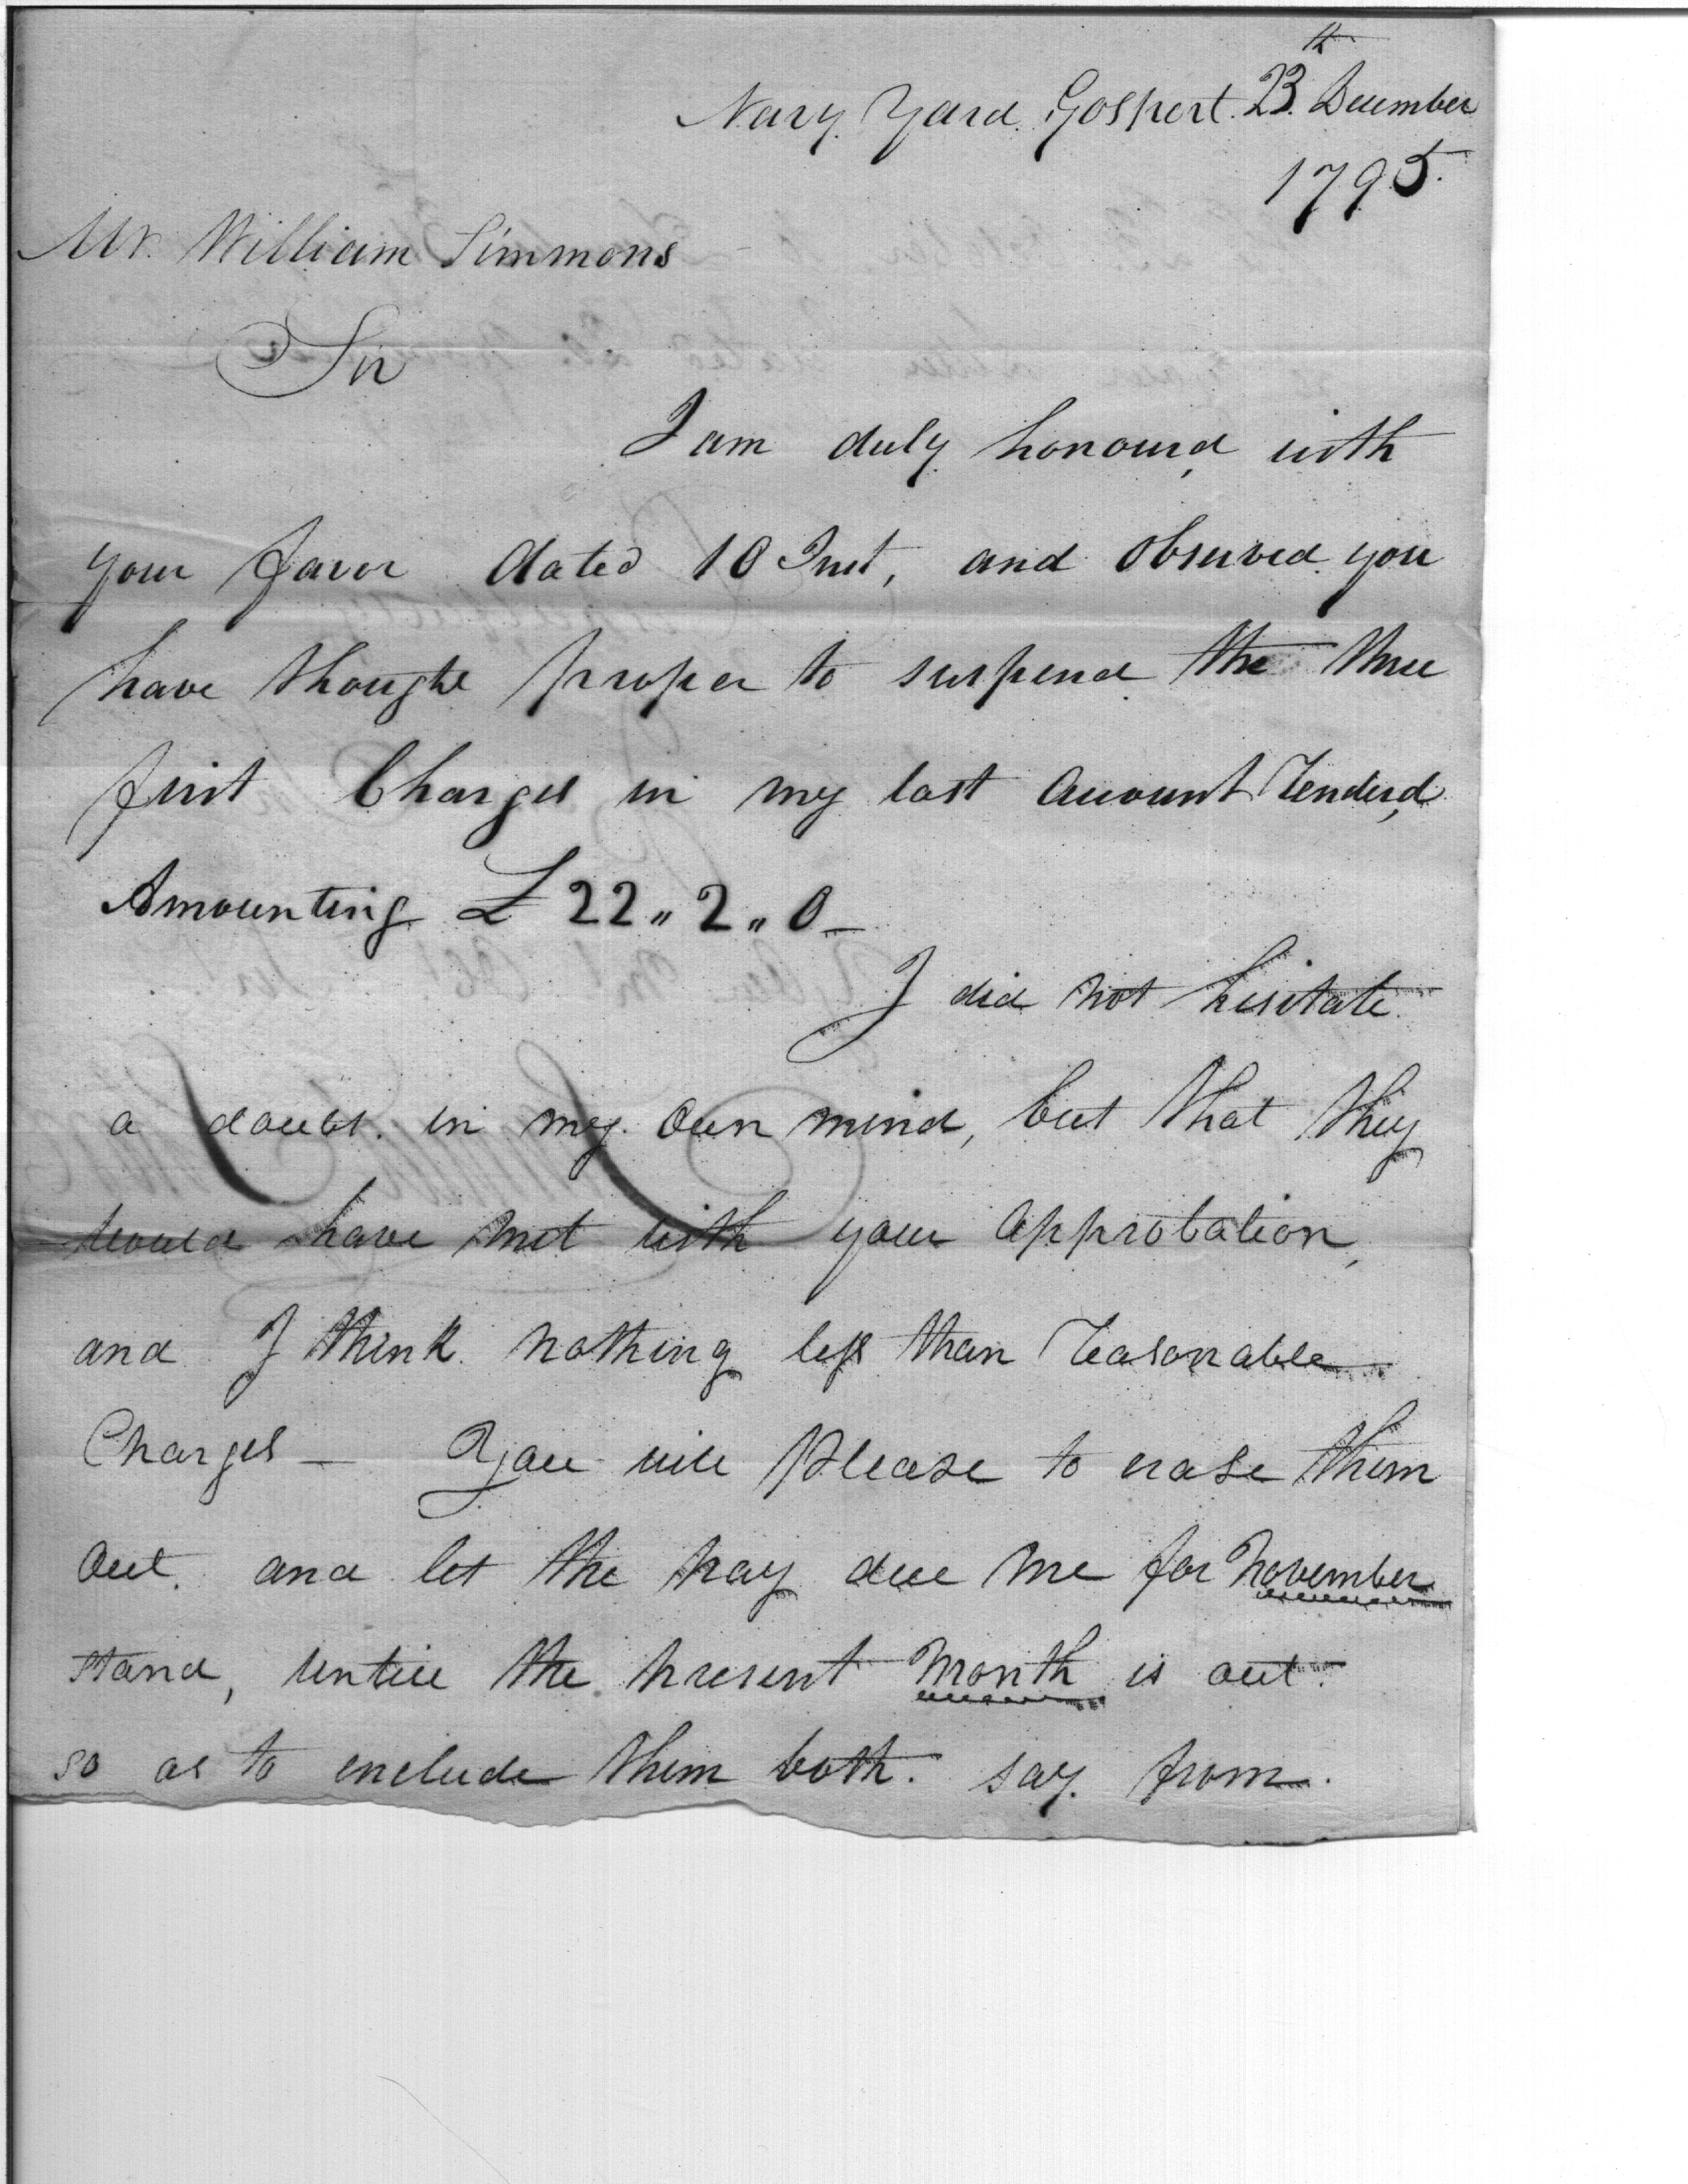 Navy Yard Gosport 23th December
1795.
Mr. William Simmons
Sir
I am duly honour,d with
your favor dated 10 Inst, and observed you
have thought proper to suspend the three
first Charges in my last account Render,d
Amounting £ 22 " 2 " 0 –
I did not hesitate
a doubt in my own mind, but that they
would have met with your approbation,
and I think nothing less than reasonable
Charges – You will please to erase them
out. and let the pay due me for November
stand, untill the present Month is out.
so as to include them both. say from.